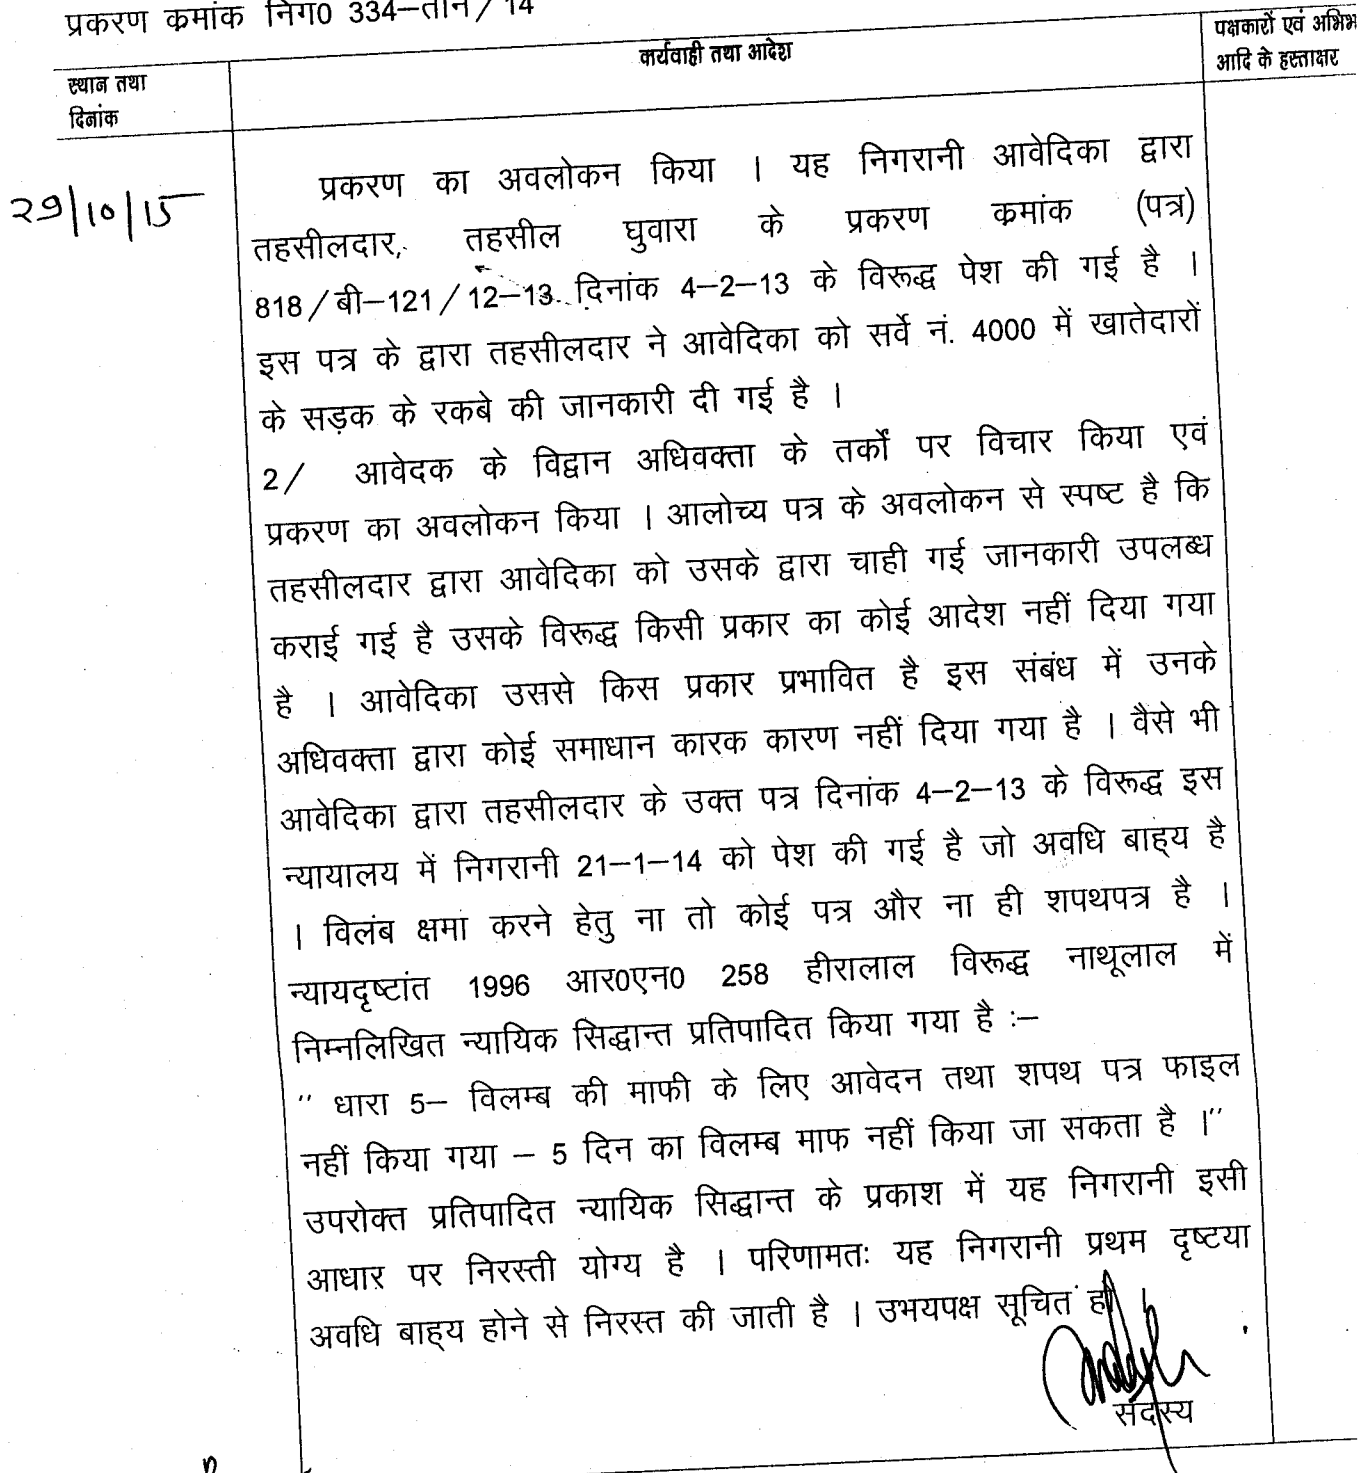 प्रकरण कमांक निग0 334–तीन/14
पक्षकारों एवं
आदि के हस्ताक्षर
कार्यवाही तथा आदेश
स्थान तथा
दिनांक
29/10/15
प्रकरण का अवलोकन किया । यह निगरानी आवेदिका द्वारा
तहसीलदार, तहसील घुवारा के प्रकरण कमांक (पत्र)
818/बी–121/12–13 दिनांक 4–2–13 के विरूद्ध पेश की गई है ।
इस पत्र के द्वारा तहसीलदार ने आवेदिका को सर्वे नं. 4000 में खातेदारों
के सड़क के रकबे की जानकारी दी गई है ।
2/ आवेदक के विद्वान अधिवक्ता के तर्कों पर विचार किया एवं
प्रकरण का अवलोकन किया । आलोच्य पत्र के अवलोकन से स्पष्ट है कि
तहसीलदार द्वारा आवेदिका को उसके द्वारा चाही गई जानकारी उपलब्ध
कराई गई है उसके विरूद्ध किसी प्रकार का कोई आदेश नहीं दिया गया
है । आवेदिका उससे किस प्रकार प्रभावित है इस संबंध में उनके
अधिवक्ता द्वारा कोई समाधान कारक कारण नहीं दिया गया है । वैसे भी
आवेदिका द्वारा तहसीलदार के उक्त पत्र दिनांक 4–2–13 के विरूद्ध इस
न्यायालय में निगरानी 21–1–14 को पेश की गई है जो अवधि बाह्य है
। विलंब क्षमा करने हेतु ना तो कोई पत्र और ना ही शपथपत्र है ।
न्यायदृष्टांत 1996 आर0एन0 258 हीरालाल विरूद्ध नाथूलाल में
निम्नलिखित न्यायिक सिद्धान्त प्रतिपादित किया गया है :–
" धारा 5– विलम्ब की माफी के लिए आवेदन तथा शपथ पत्र फाइल
नहीं किया गया – 5 दिन का विलम्ब माफ नहीं किया जा सकता है ।"
उपरोक्त प्रतिपादित न्यायिक सिद्धान्त के प्रकाश में यह निगरानी इसी
आधार पर निरस्ती योग्य है । परिणामतः यह निगरानी प्रथम दृष्टया
अवधि बाह्य होने से निरस्त की जाती है । उभयपक्ष सूचित हों ।
सदस्य